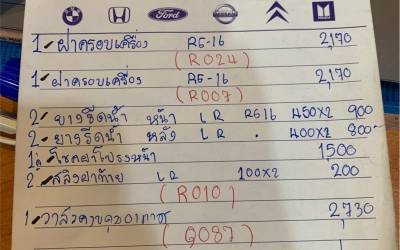 HONDA Ford NISSAN
1 - ฝาครอบเครื่อง RE-16 2,170
(R024)
1 - ฝาครอบเครื่อง RE-16 2,170
(R007)
2 - ยางรีดน้ำ หน้า LR RE16 450x2 900
2 - ยางรีดน้ำ หลัง LR . 400x2 800-
1 โชคฝาโปรงหน้า 1500
2 สลิงฝาท้าย LR 100x2 200
(R010)
1 - วาล์วควบคุมอากาศ 2,730
(Q087)